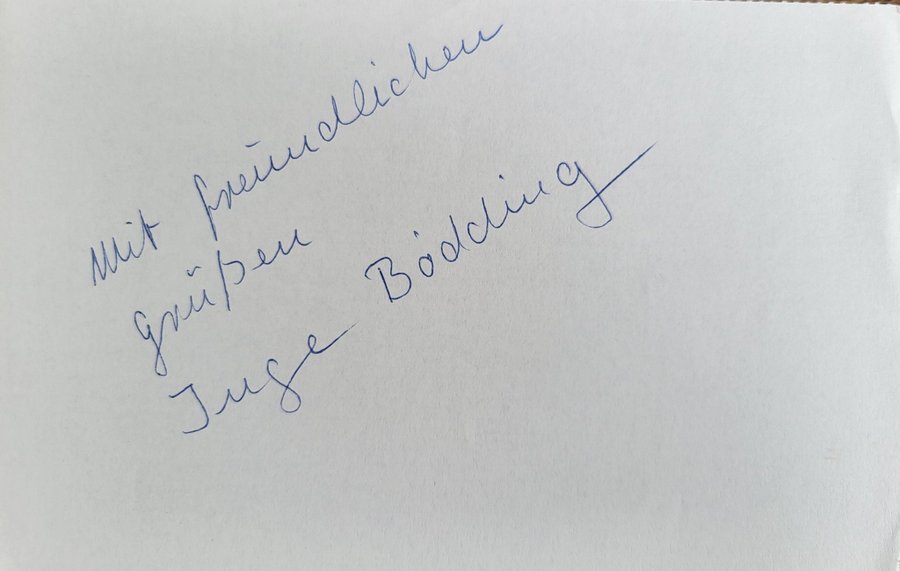 Mit freundlichen
grüßen
Inge Bödding